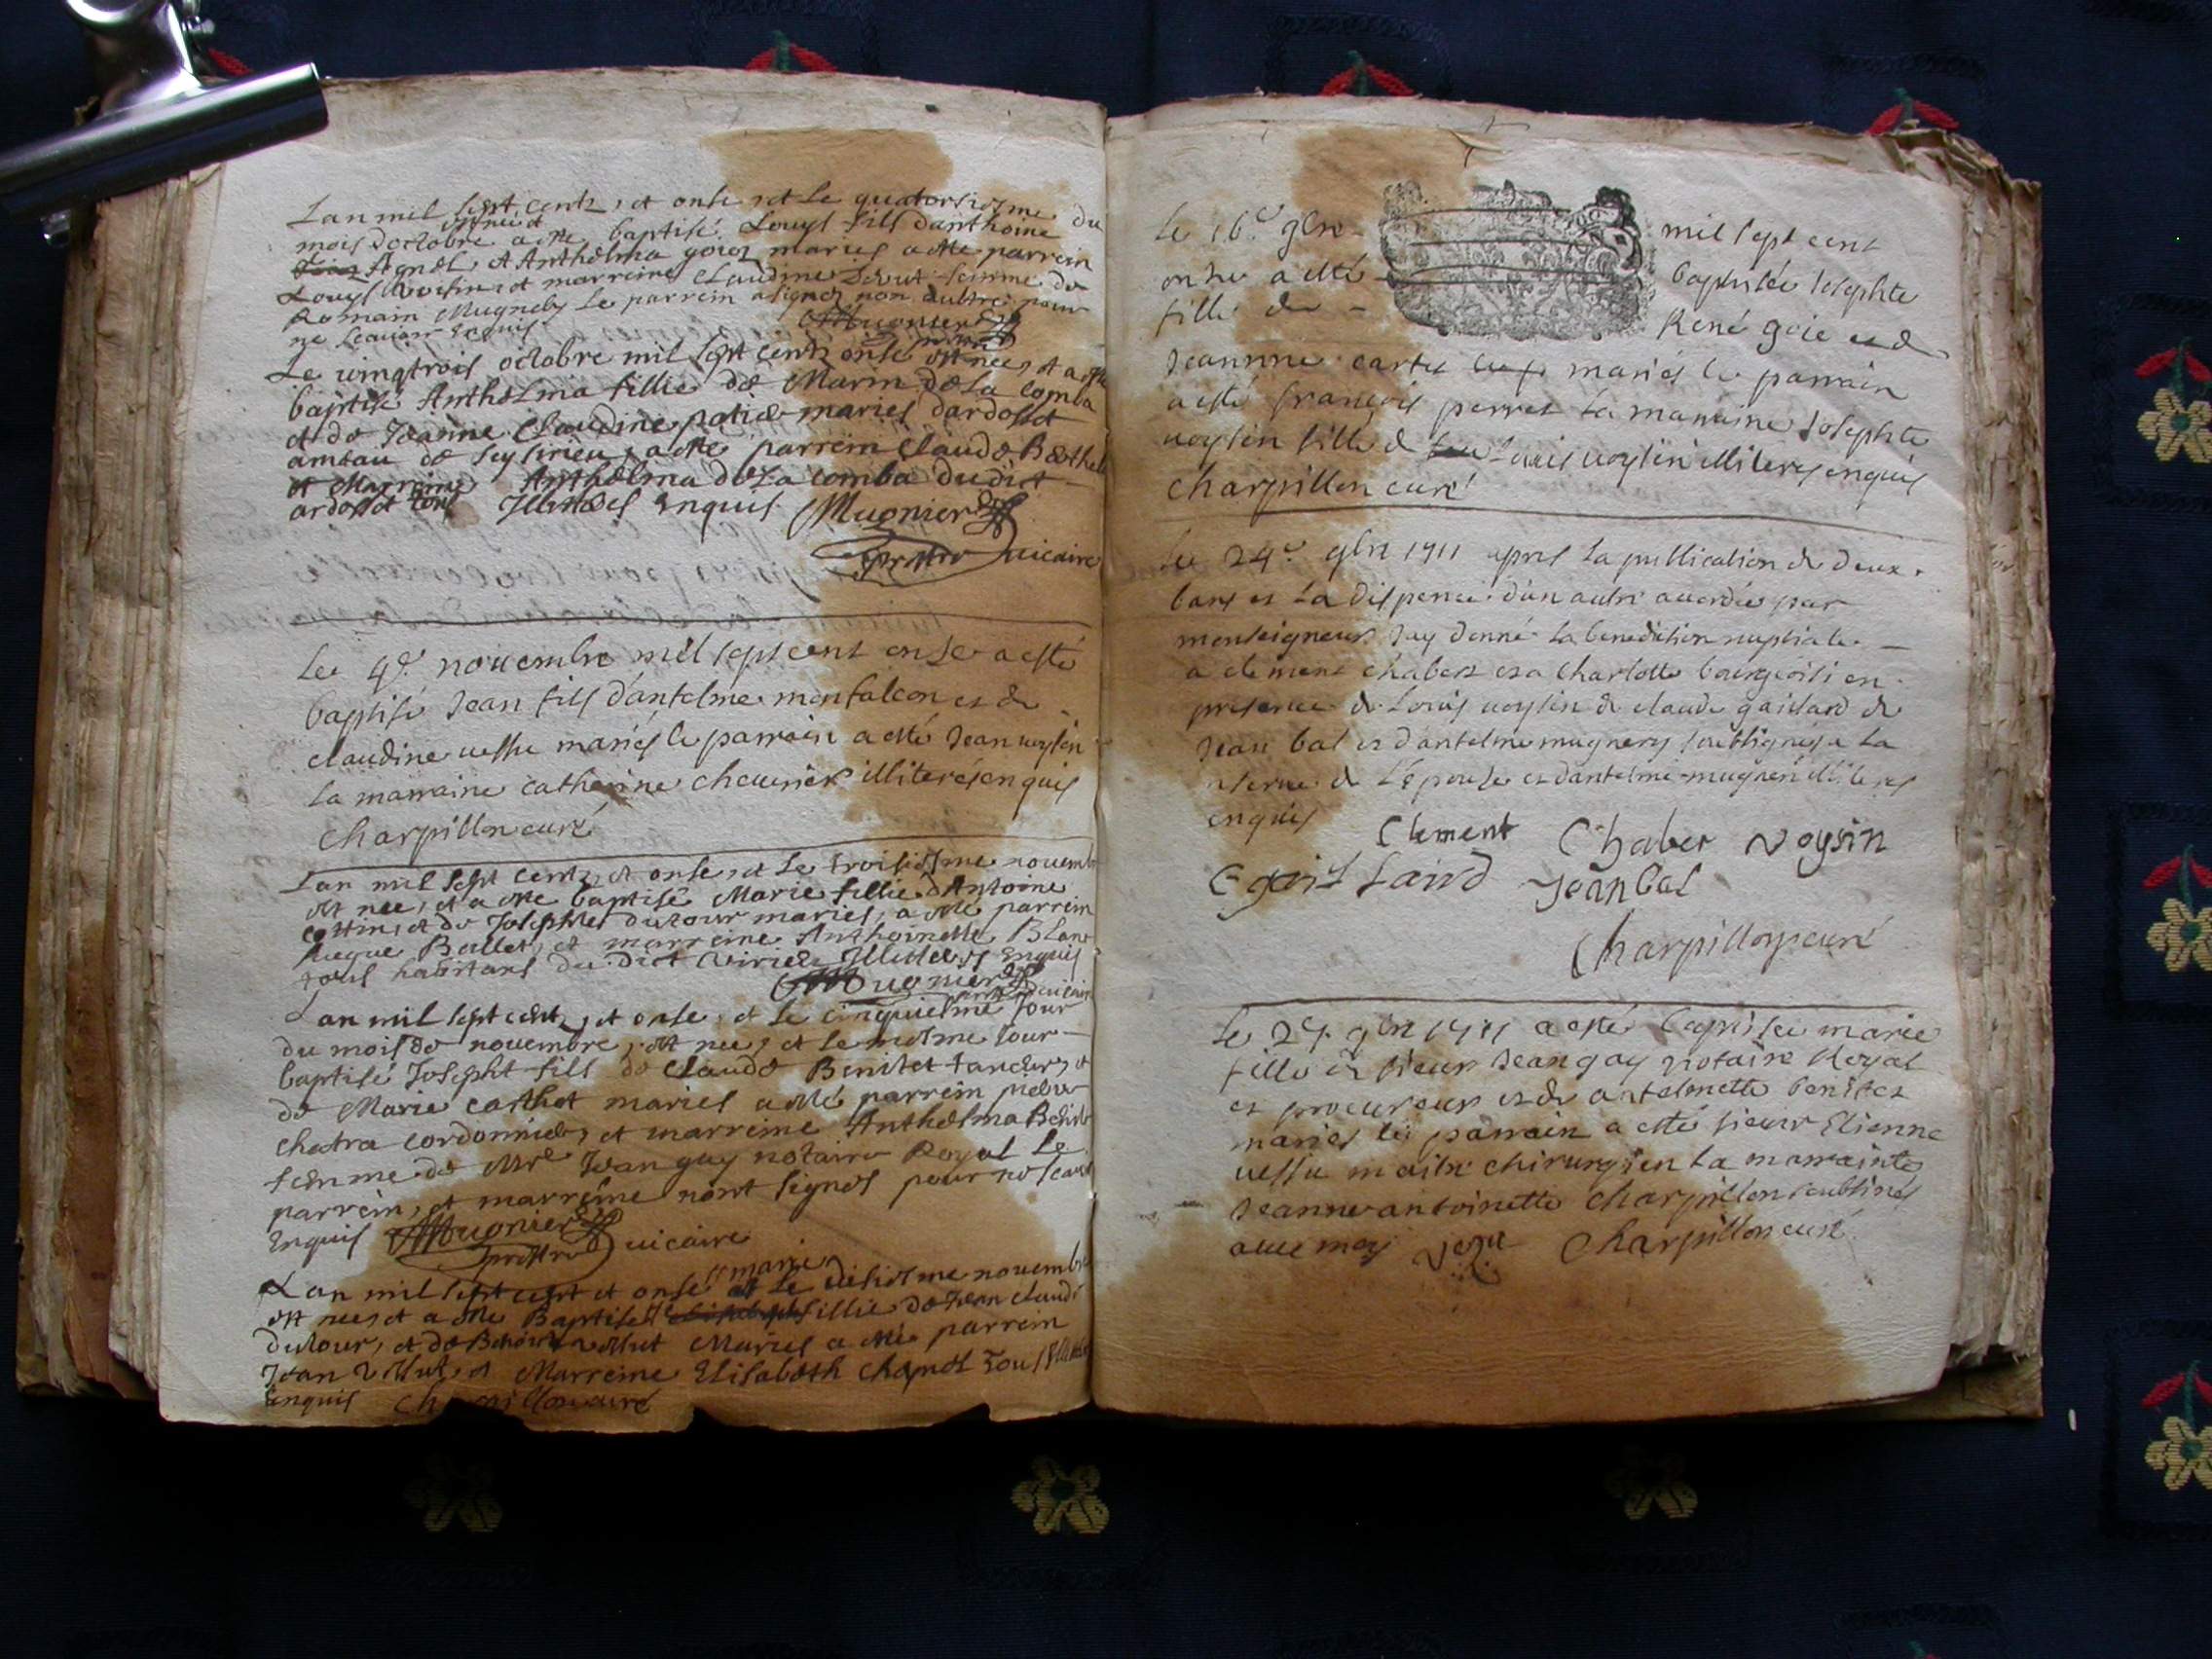 Lan mil sept centz, et onse, et le quatorsiesme du
mois doctobre est né et a esté baptisé Louys fils danthoine
Agnel, et Anthelma goiez mariés a esté parrein
Louys Voisin, et marreine Claudine femme de
Romain Mugneby le parrein a signez non aultre pour
ne scavoir enquis
Mugnier
Le vingtrois octobre mil sept centz onse est née, et a esté
baptisé Anthelma fillie de Marin de La Comba
et de Jeanne Claudine mariés dardosset
ameau de seyserieu, a esté parrein Claude Berthel
et Marreine Anthelma de La Comba dudict
ardosset tous Illitérés Enquis Mugnier
prestre vicaire
Le 4e novembre mil sept cent onse a esté
baptisé Jean fils dantelme montfalcon et de
claudine vessu mariés le parrain a esté Jean voysin
la marraine catherine chevrier illiterés enquis
Charpillon curé
Lan mil sept centz, et onse, et le troisiesme novemb
est née, et a esté baptisé Marie fillie dAntoine
cottin, et de Josephte dutour mariés, a esté parrein
hugue Ballet, et marreine Anthoinette Blanc
tous habitans du dict virieu Illiterés Enquis
Mugnier vicaire
Lan mil sept centz, et onse, et le cinquiesme jour
du mois de novembre, est né, et le mesme jour
baptisé Josepht fils de Claude Benitet tancur, et
de Marie casthot mariés a esté parrein
chatra cordonnier, et marreine Anthelma Benit
femme de Mre Jean gay notaire Royal Le
parrein, et marreine nont signés pour ne scav
Enquis Mugnier
prestre vicaire
marie
Lan mil sept cent et onse et le disiesme novembre
est née, et a esté Baptisé fillie de Jean claude
dutour, et de vettut Mariés a esté parrein
Jean vettut, et Marreine Elisabeth Chapnel Tous
Enquis Charpillon curé
Le 16e 9bre mil sept cent
onse a esté baptisée Josephte
fille de René goie et de
Jeanne cartes mariés le parrain
a esté françois perret La marraine Josephte
voysin fille de Louis voysin illiterés enquis
Charpillon curé
Le 24e 9bre 1711 apres la publication de deux
bans et La dispence dun autre accordée par
monseigneur Jay donné la benediction nuptiale
a clement chaber et a Charlotte bourgeois en
presence de Louis voysin de claude gaillard de
Jean bal et dantelme mugnery soussignés a La
reserve de Lepouse et dantelme mugneri illiterés
enquis
Clement Chaber Voysin
C gaillaird Jean bal
Charpillon curé
Le 29 9bre 1711 a esté baptisée marie
fille de sieur Jean gay notaire Royal
et procureur et de antelmette benitet
mariés le parrain a esté sieur Etienne
vessu maitre chirurgien La marrainte
Jeanne antoinette Charpillon soubsinés
avec moy Charpillon curé